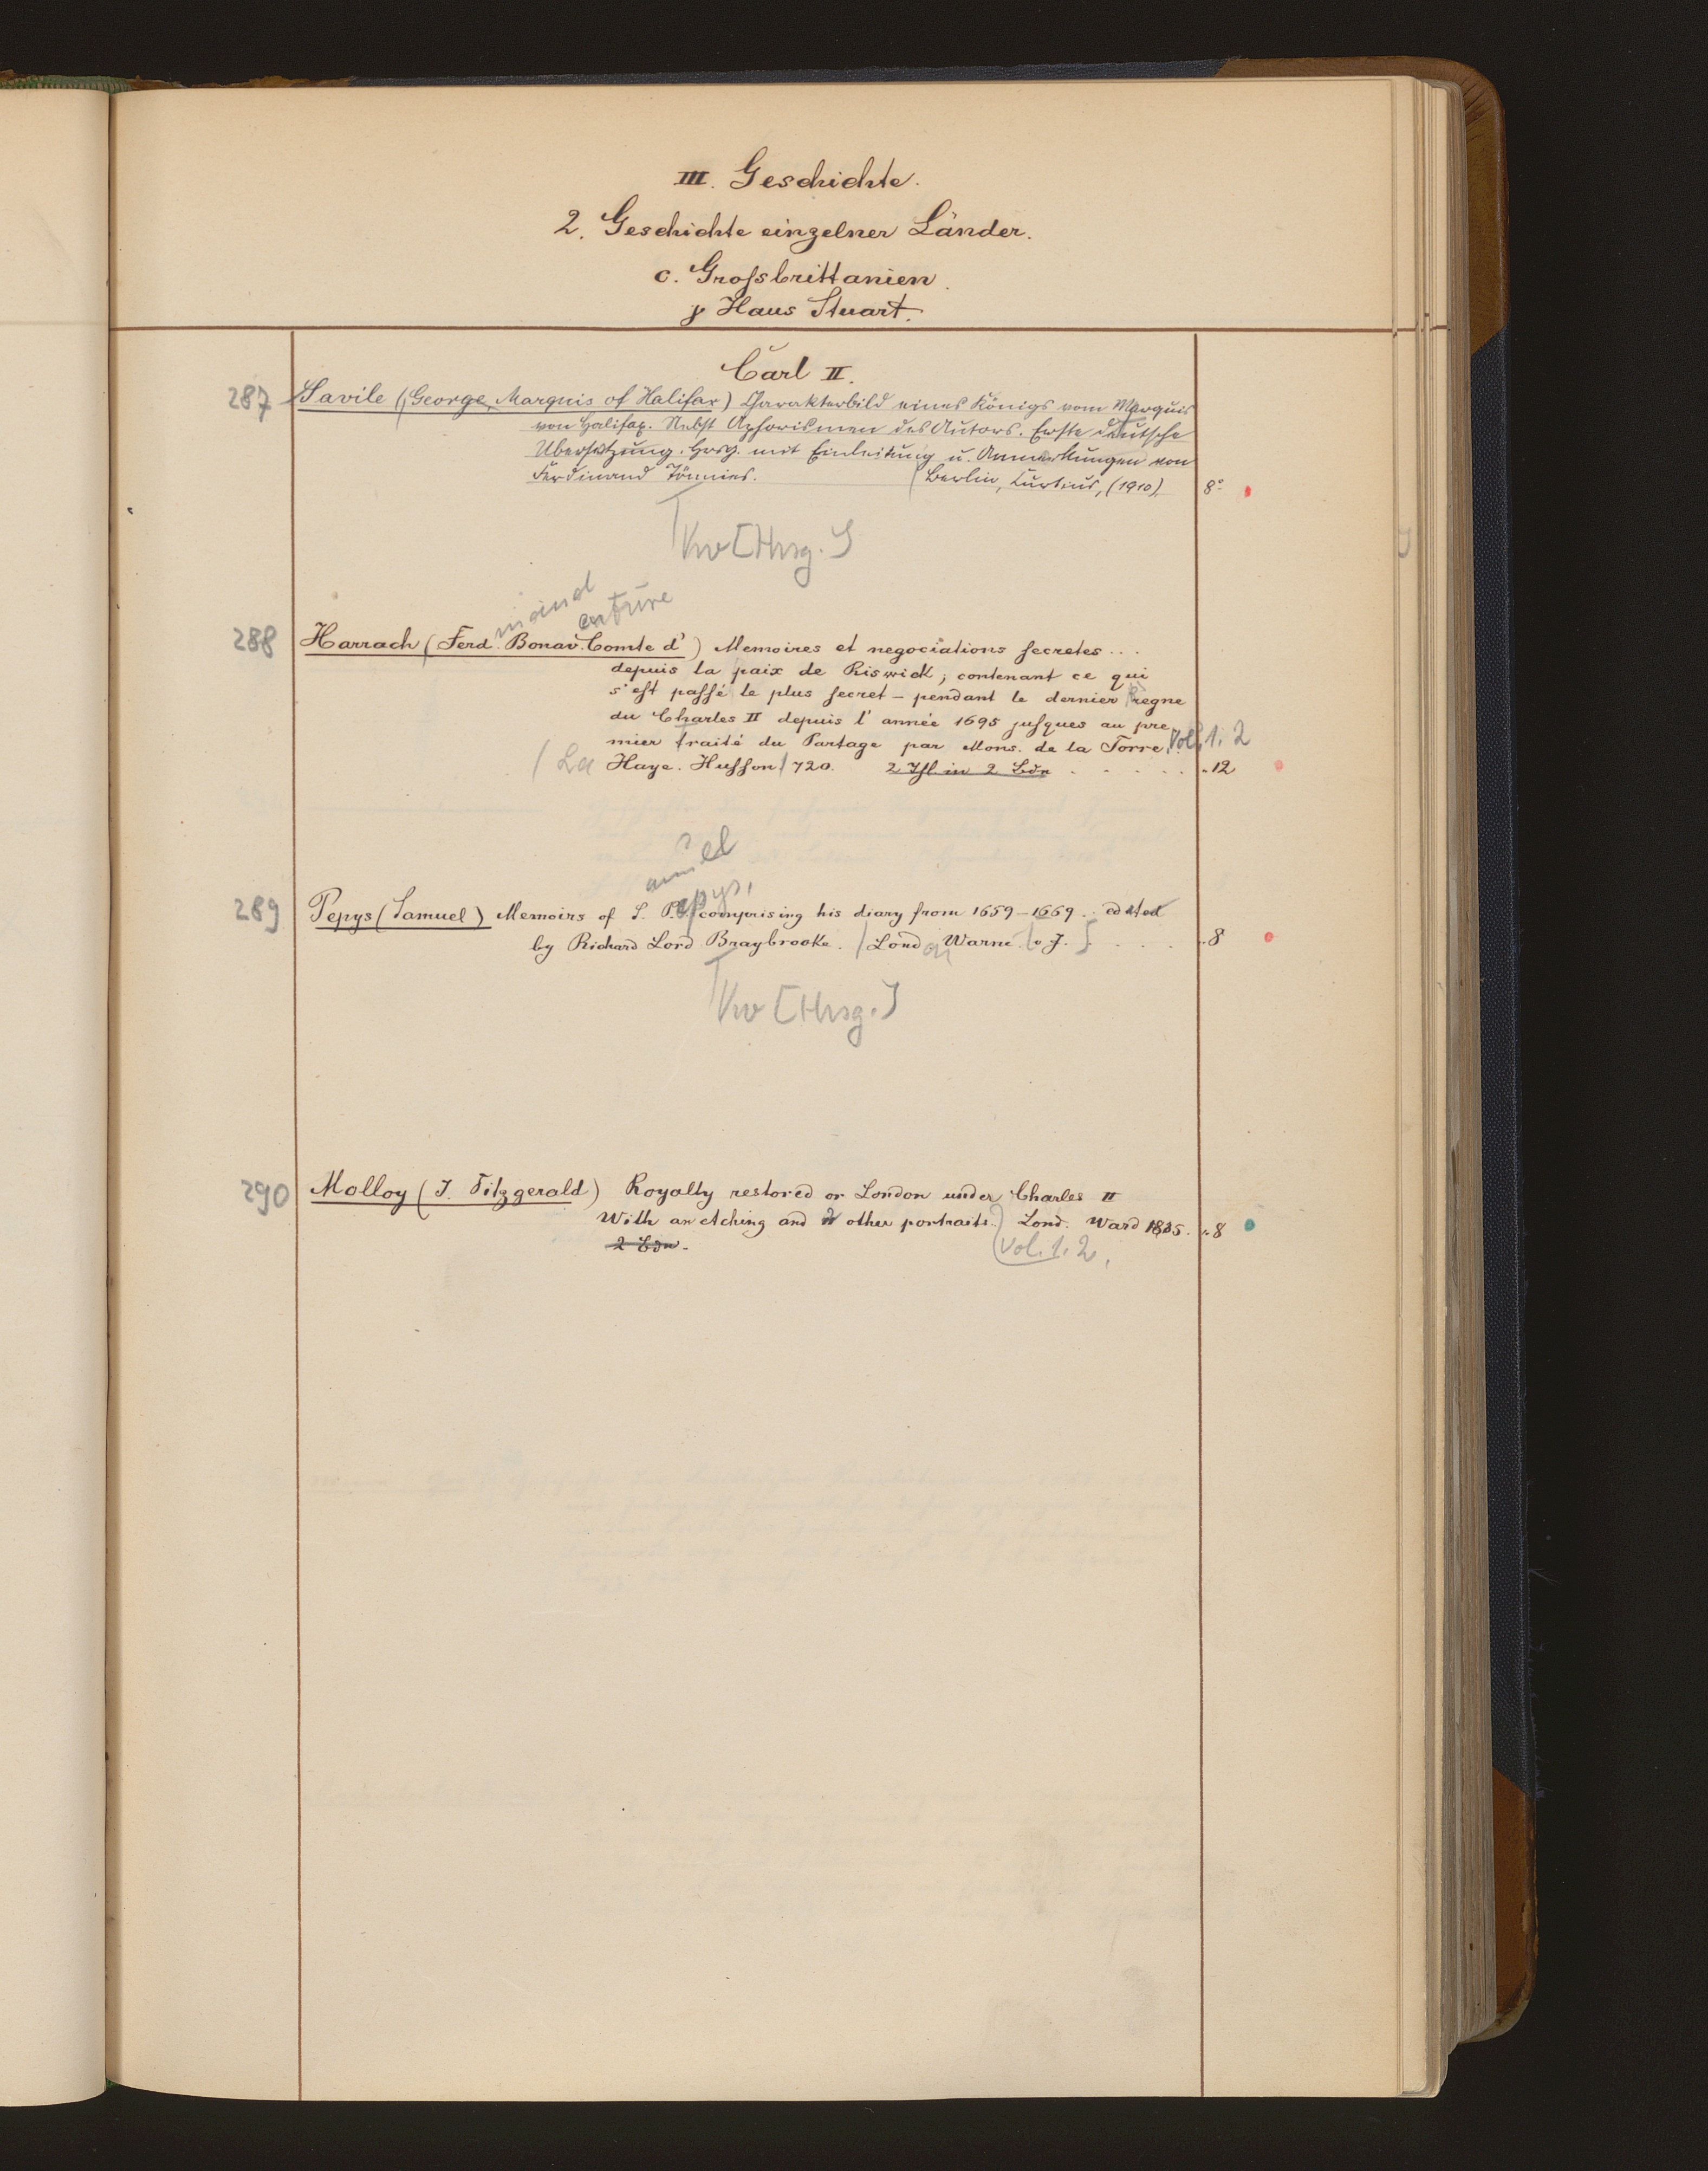 III. Geschichte.
2. Geschichte einzelner Länder.
c. Grossbrittanien.
γ Haus Stuart.
Carl II.
287 Savile (George, Marquis of Halifax) Charakterbild eines Königs vom Marquis
von Halifax. Nebst Aphorismen des Autors. Erste deutsche
Übersetzung. Hrsg. mit Einleitung u. Anmerkungen von
Ferdinand Tönnies. Berlin, Curtius, (1910) 8°
Vw [Hrsg.]
inand
enture
288 Harrach (Ferd. Bonav. Comte d') Memoires et negociations secretes ...
depuis la paix de Riswick; contenant ce qui
s'est passé le plus secret - pendant le dernier regne
du Charles II depuis l'année 1695 jusques au pre
mier traité du Partage par Mons. de la Torre. Vol. 1. 2
La Haye. Husson 720. 2 Thl. in 2 Bdn . . . . . . „12
amuel
epys,
289 Pepys (Samuel) Memoirs of S. P. comprising his diary from 1659-1669 .. edited
by Richard Lord Braybrooke. London Warne [o J.] . . . . „8
Vw [Hrsg.]
290 Molloy (J. Fitzgerald) Royalty restored or London under Charles II
With an etching and other portraits. Lond. Ward 1885. „8
2 Bdn. Vol. 1. 2.